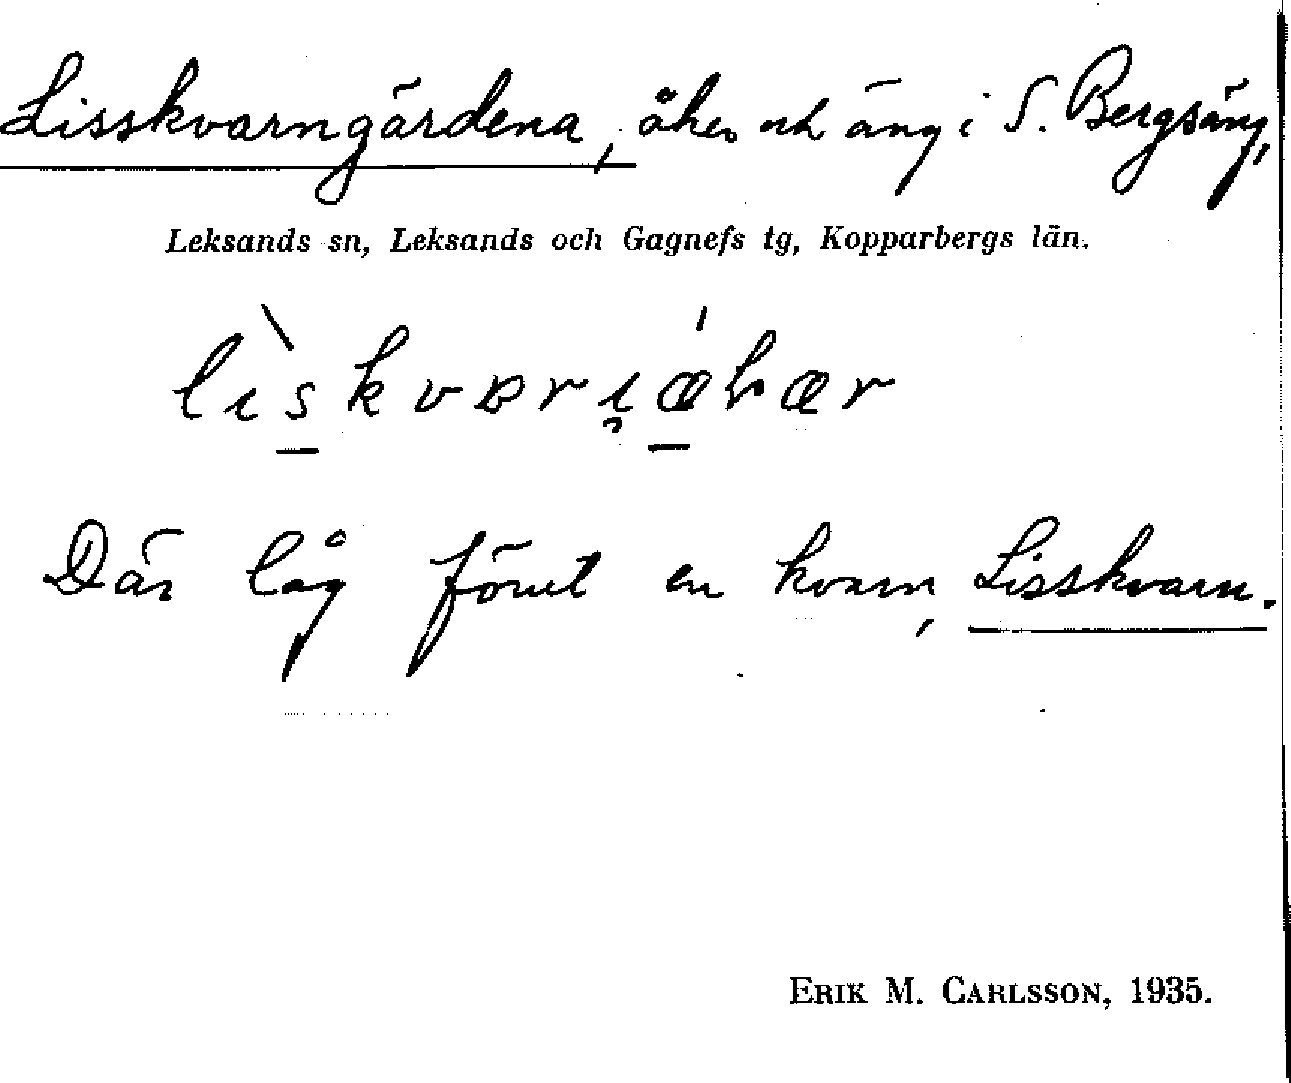 Lisskvarngärdena, åker och äng i S. Bergsäng,
Leksands sn, Leksands och Gagnefs tg, Kopparbergs län.
Där låg förut en kvarn, Lisskvarn.
ERIK M. CARLSSON, 1935.